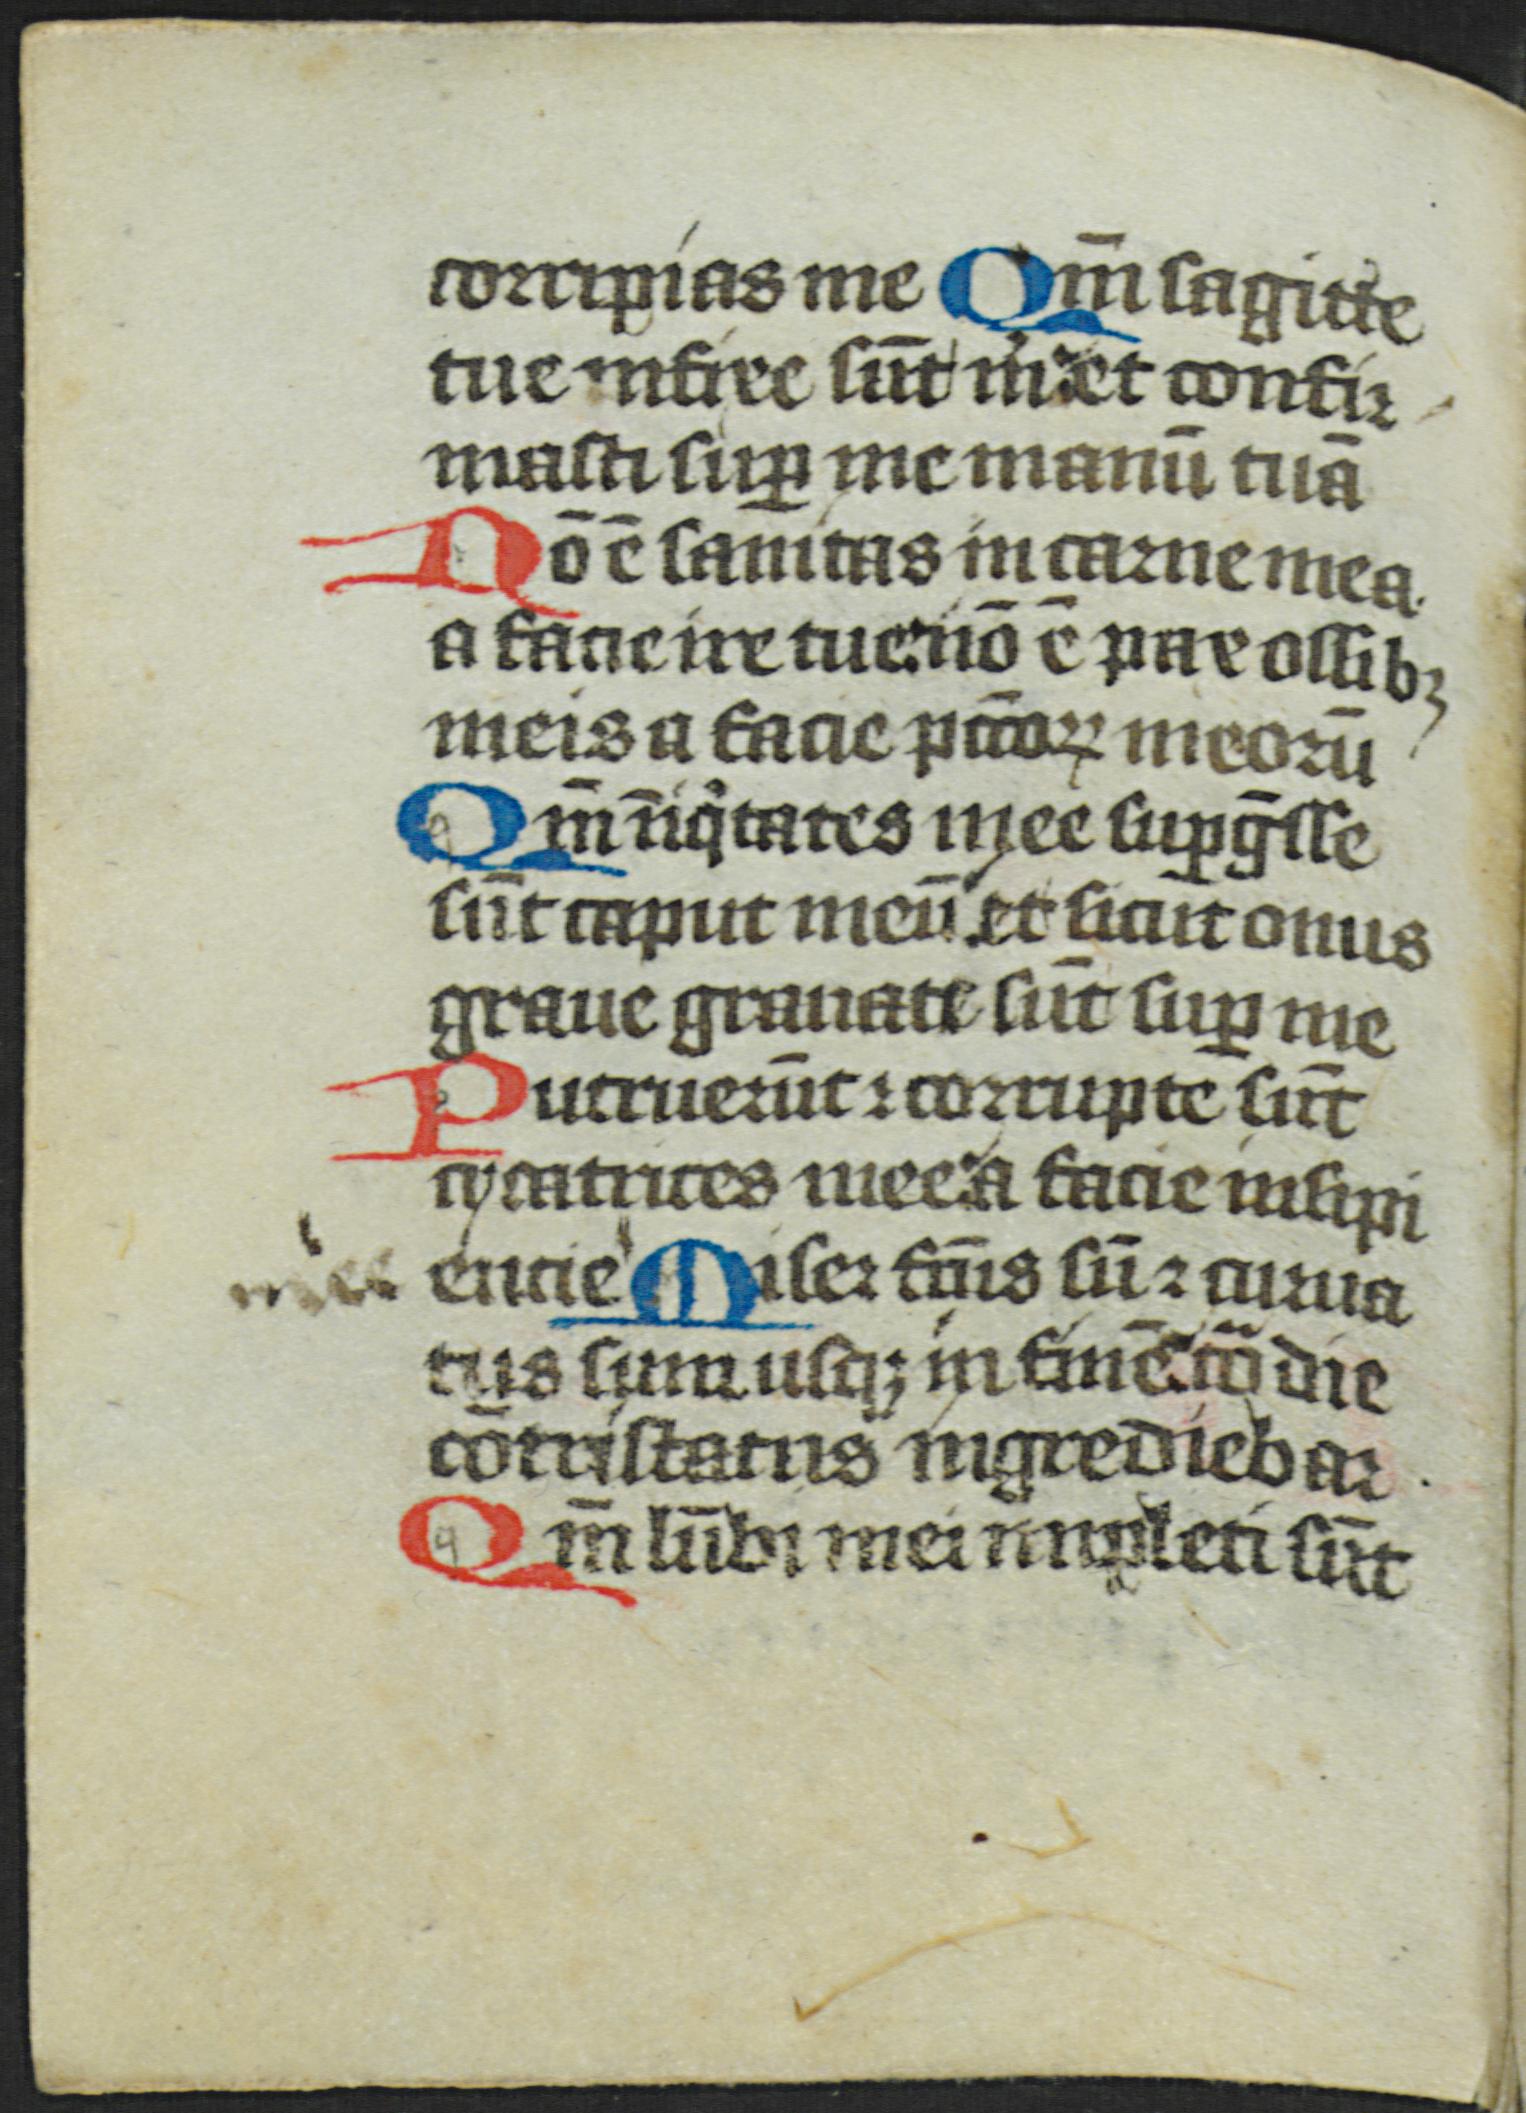 corripias me Qm̄ sagitte
tue infixe sūt m̄ et confir
masti suꝑ me manū tuā
Nō ē sanitas in carne mea.
a facie ire tue nō ē pax ossibꝫ
meis a facie pc̄coꝝ meorū
Qm̄ iīqͥtates mee suꝑḡsse
sūt caput meū et sicut onus
graue grauate sūt suꝑ me
Putruerūt ꝛ corrupte sūt
cycatrices mee a facie insipi
mee encie Miser fc̄us sū ꝛ curua
tus sum usqꝫ in finē to͞ die
cōtristatus ingrediebar
Qm̄ lūbi mei impleti sūt